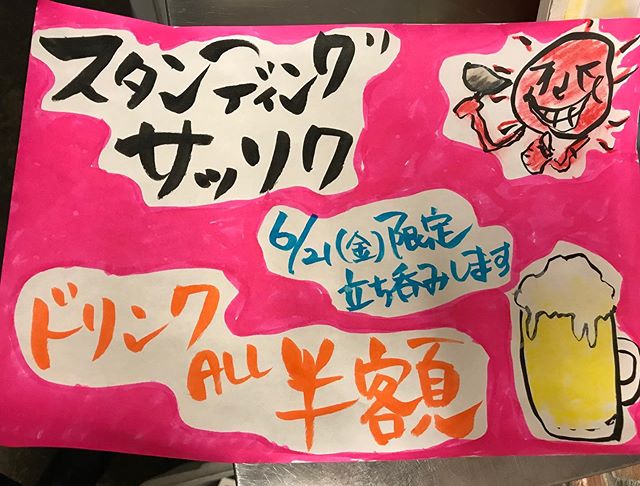 スタンディング
サッソク
6/21(金)限定
立ち呑みします
ドリンク
ALL 半額